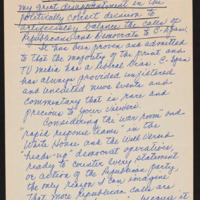 my great disappointment in the
politically correct decision to
artificially balance the calls of
Republicans and Democrats to C-Span.
It has been proven and admitted
that the majority of the print and
TV media has a liberal bias. C-Span
has always provided unfiltered
and unedited news events and
commentary that is rare and
precious to your viewers.
Considering the "war room" and
"rapid response teams" in the
White House and the well versed
"heads-up" democrat operation,
ready to counter every statement
or action of the Republican party,
the only reason I can imagine
that more Republican calls are